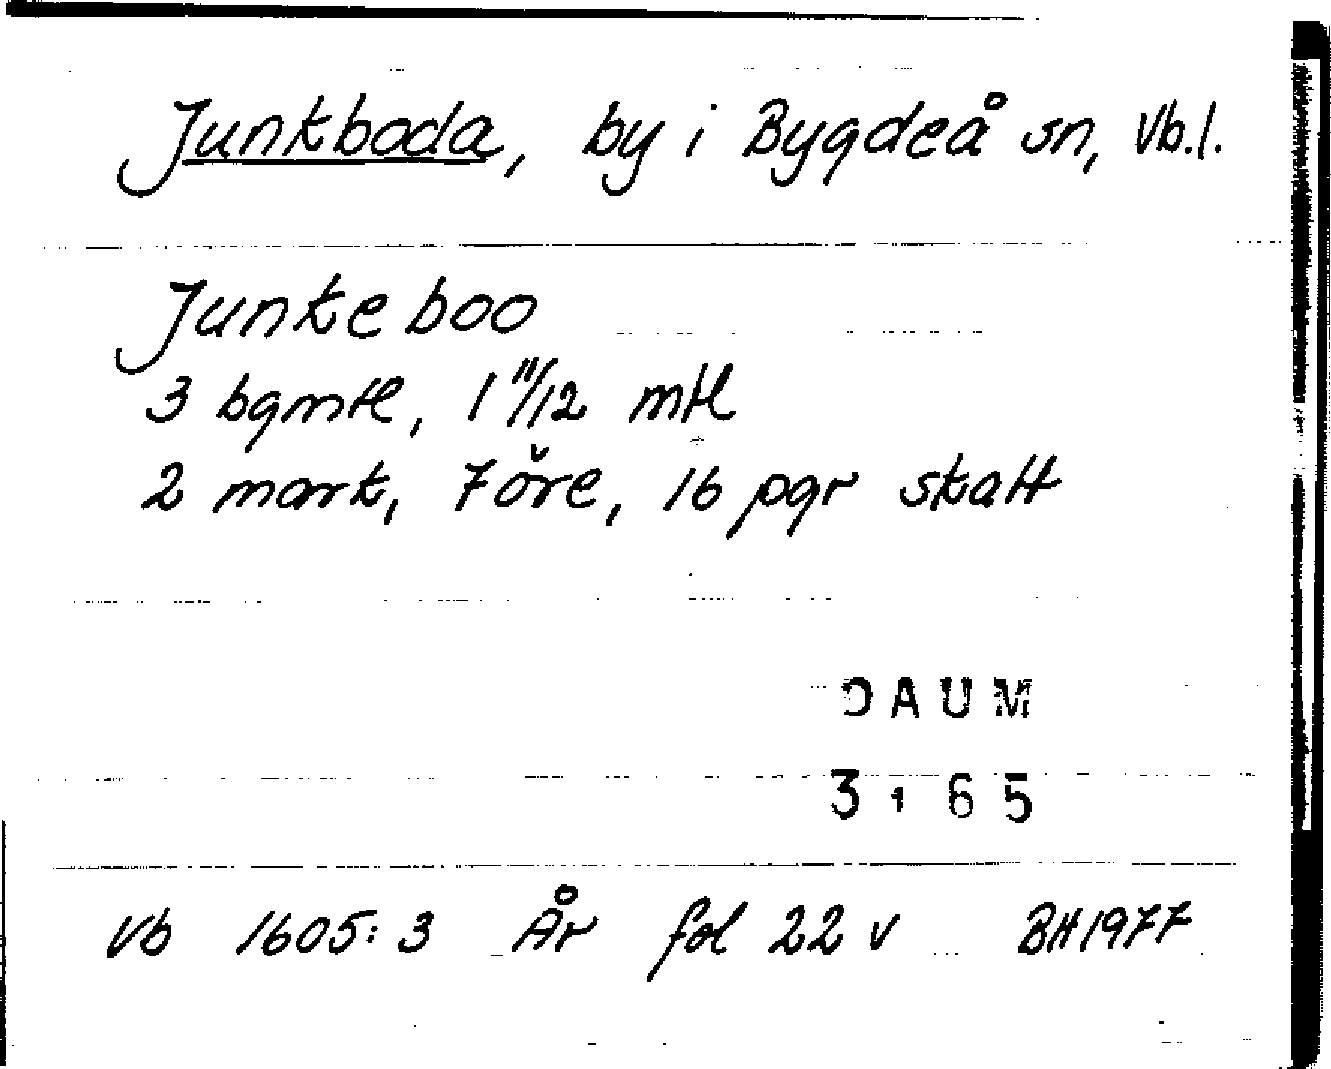 Junkboda, by i Bygdeå sn, Vb.l.
Junkeboo
3 bgmtl, 1 11/12 mtl
2 mark, 7 öre, 16 pgr skatt
DAUM
3165
Vb 1605:3 År fol 22 v BH 1977